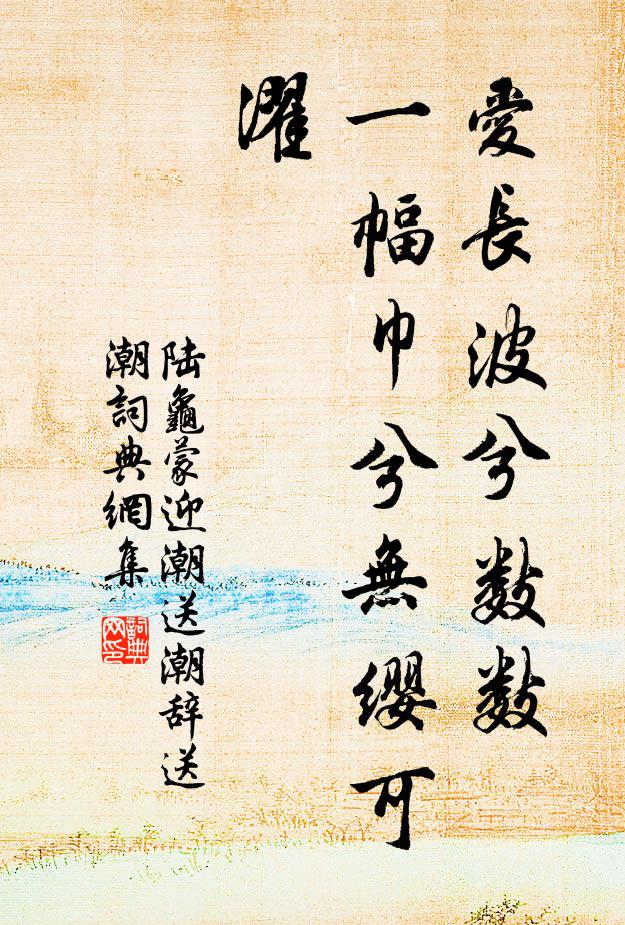 愛長波兮數數
一幅巾兮無纓可
濯
陆龜蒙迎潮送潮辞送
潮詞典網集
詞典
网印